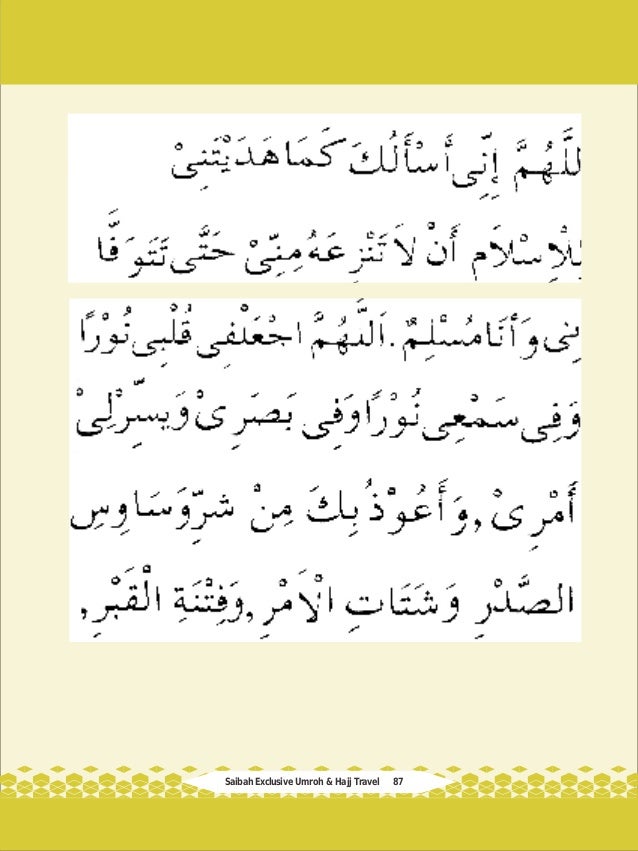 للَّهُمَّ إِنِّى أَسْأَلُكَ كَمَا هَدَيْتَنِىْ
لِلْإِسْلَامِ أَنْ لَا تَنْزِعَهُ مِنِّىْ حَتَّى تَتَوَفَّا
نِى وَأَنَا مُسْلِمٌ. اَللَّهُمَّ اجْعَلْ فِى قُلْبِى نُوْرًا
وَفِى سَمْعِى نُوْرًا وَفِى بَصَرِىْ وَيَسِّرْ لِىْ
أَمْرِىْ, وَأَعُوْذُ بِكَ مِنْ شَرِّ وَسَاوِسِ
الصَّدْرِ وَشَتَاتِ الْاَمْرِ, وَفِتْنَةِ الْقَبْرِ,
Saibah Exclusive Umroh & Hajj Travel 87